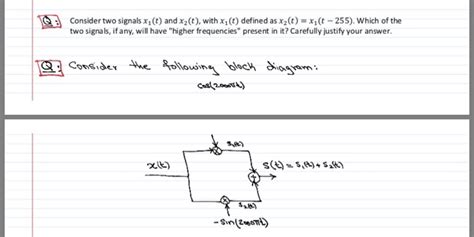 Q: Consider two signals x₁(t) and x₂(t), with x₁(t) defined as x₂(t) = x₁(t − 255). Which of the
two signals, if any, will have "higher frequencies" present in it? Carefully justify your answer.
Q: Consider the following block diagram:
cos(2000πt)
S₁(t)
x(t)
S(t) = S₁(t) + S₂(t)
S₂(t)
-sin(2000πt)